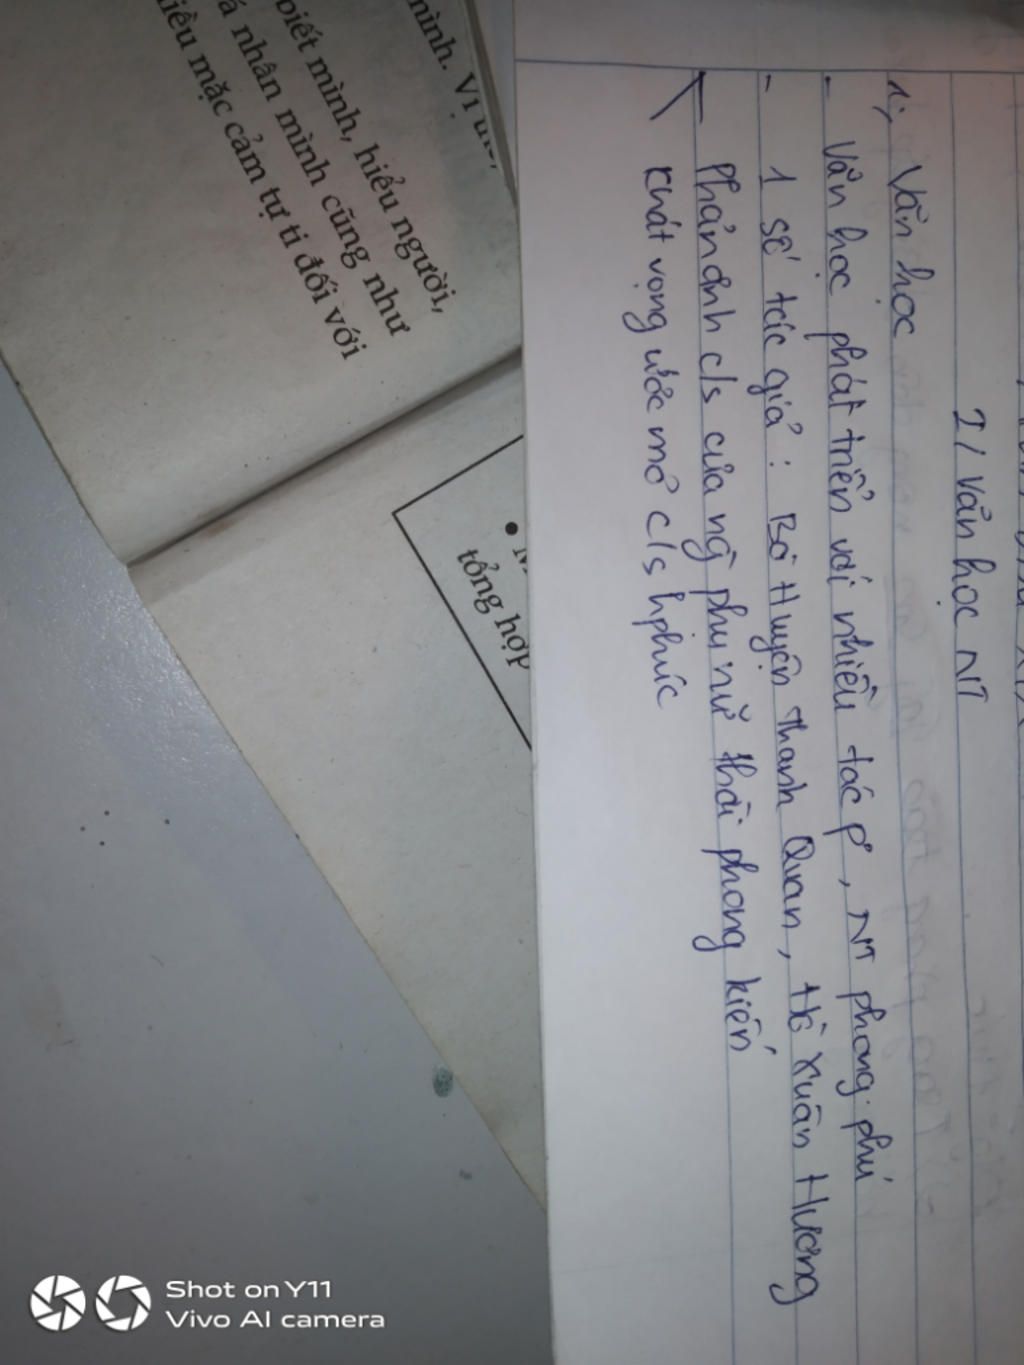 I/ Văn học NT
1, Văn học
- Văn học phát triển với nhiều tác p', NT phong phú
- 1 số tác giả: Bà Huyện Thanh Quan, Hồ Xuân Hương
Phản ánh c/s của ng phụ nữ thời phong kiến
Khát vọng ước mơ c/s hphúc
mình. Vị
biết mình, hiểu người,
nhân mình cũng như
mặc cảm tự ti đối với
tổng hợp
Shot on Y11
Vivo AI camera